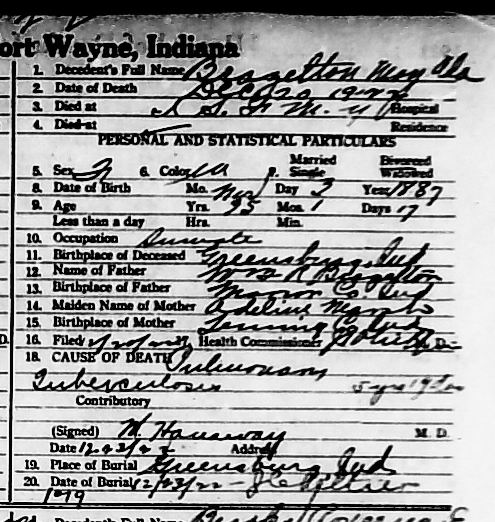 ort Wayne, Indiana
1. Decedent's Full Name Brazelton May Ala
2. Date of Death Dec 20 1922
3. Died at I S F M. Y Hospital
4. Died at Residence
PERSONAL AND STATISTICAL PARTICULARS
Married Divorced
5. Sex F 6. Color W 7. Single Widowed
8. Date of Birth Mo. Nov Day 3 Year 1887
9. Age Yrs. 35 Mos. 1 Days 17
Less than a day Hrs. Min.
10. Occupation Inmate
11. Birthplace of Deceased Greensburg, Ind
12. Name of Father Wm R Brazelton
13. Birthplace of Father Marion C. Ind
14. Maiden Name of Mother Adeline
15. Birthplace of Mother Ind
D. 16. Filed Health Commissioner M. D.
18. CAUSE OF DEATH Pulmonary
Tuberculosis 5 yrs
Contributory
(Signed) M. M. D.
Date 12 23 22 Address
19. Place of Burial Greensburg Ind
20. Date of Burial 12/23/22 - J C Peltier
1079
Decedent's Full Name